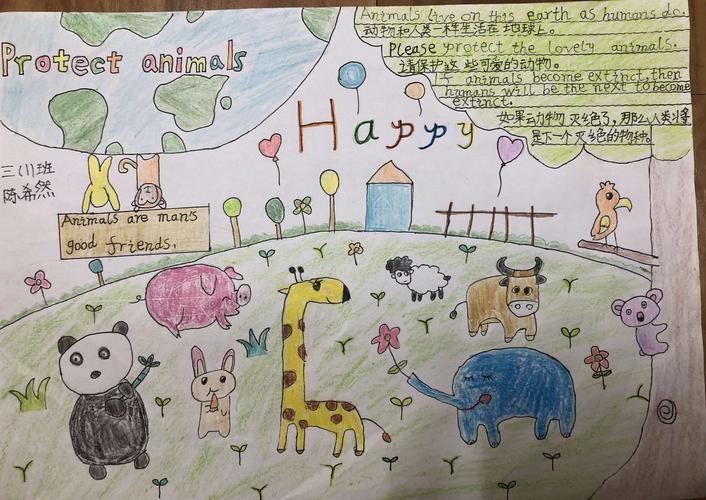 Protect animals
Animals live on this earth as humans do.
动物和人类一样生活在地球上。
Please protect the lovely animals.
请保护这些可爱的动物。
If animals become extinct, then
humans will be the next to become
extinct.
如果动物灭绝了,那么人类将
是下一个灭绝的物种。
Happy
三(1)班
陈希然
Animals are man's
good friends.